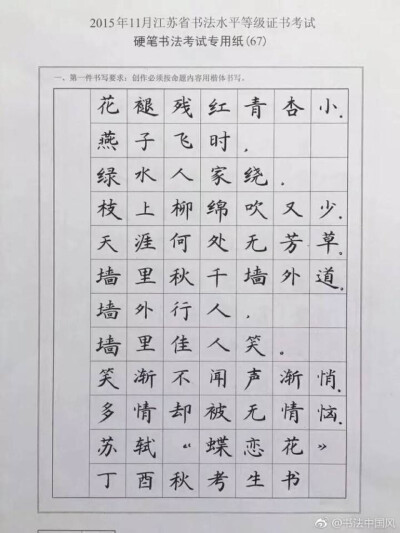 2015年11月江苏省书法水平等级证书考试
硬笔书法考试专用纸(67)
一、第一件书写要求：创作必须按命题内容用楷体书写。
花褪残红青杏小。
燕子飞时，
绿水人家绕。
枝上柳绵吹又少。
天涯何处无芳草。
墙里秋千墙外道。
墙外行人，
墙里佳人笑。
笑渐不闻声渐悄。
多情却被无情恼。
苏轼《蝶恋花》
丁酉秋考生书
@书法中国风